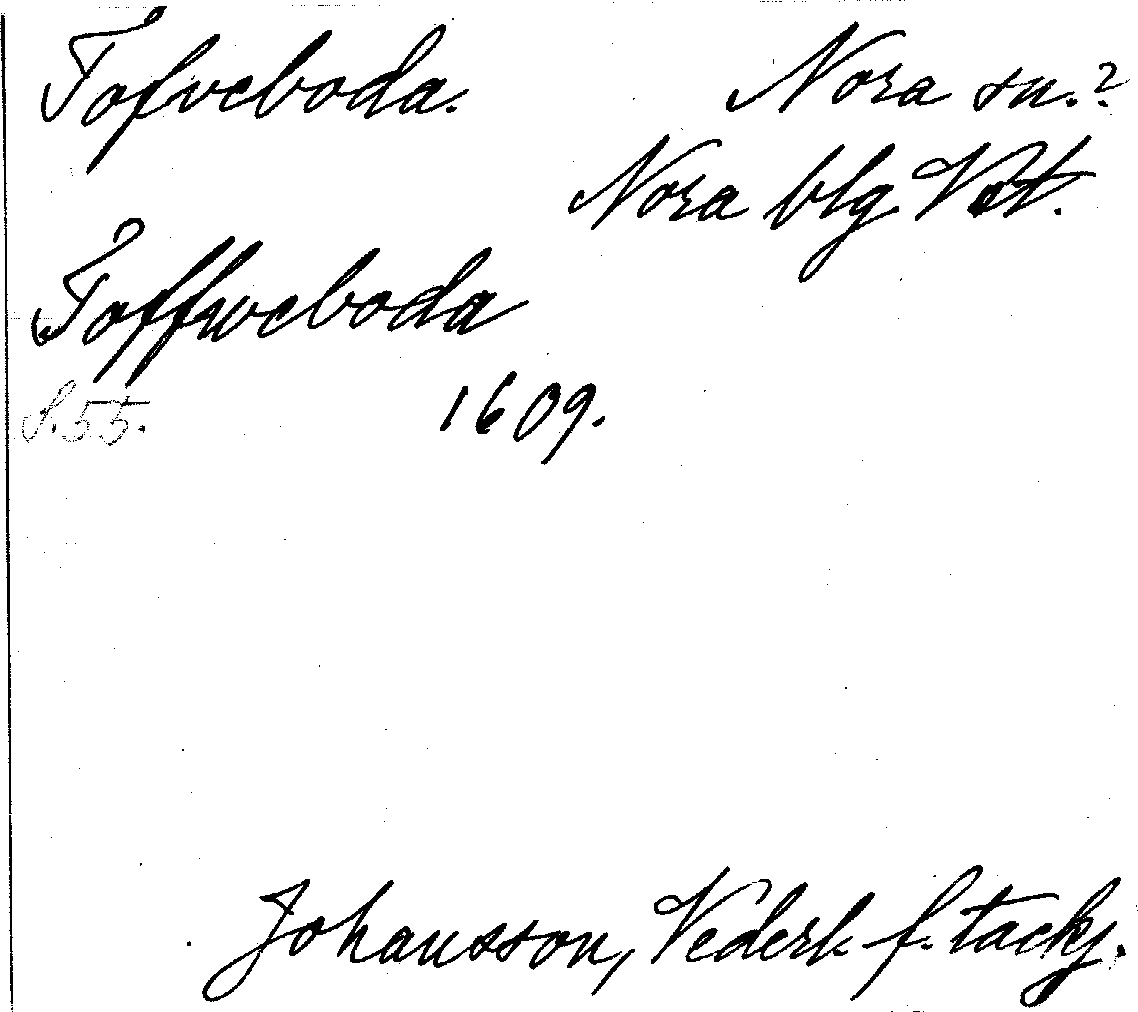 Tofveboda. Nora sn.?
Nora blg Vstm.
Toffweboda
S. 55. 1609.
Johansson, Vederl. f. tackj.